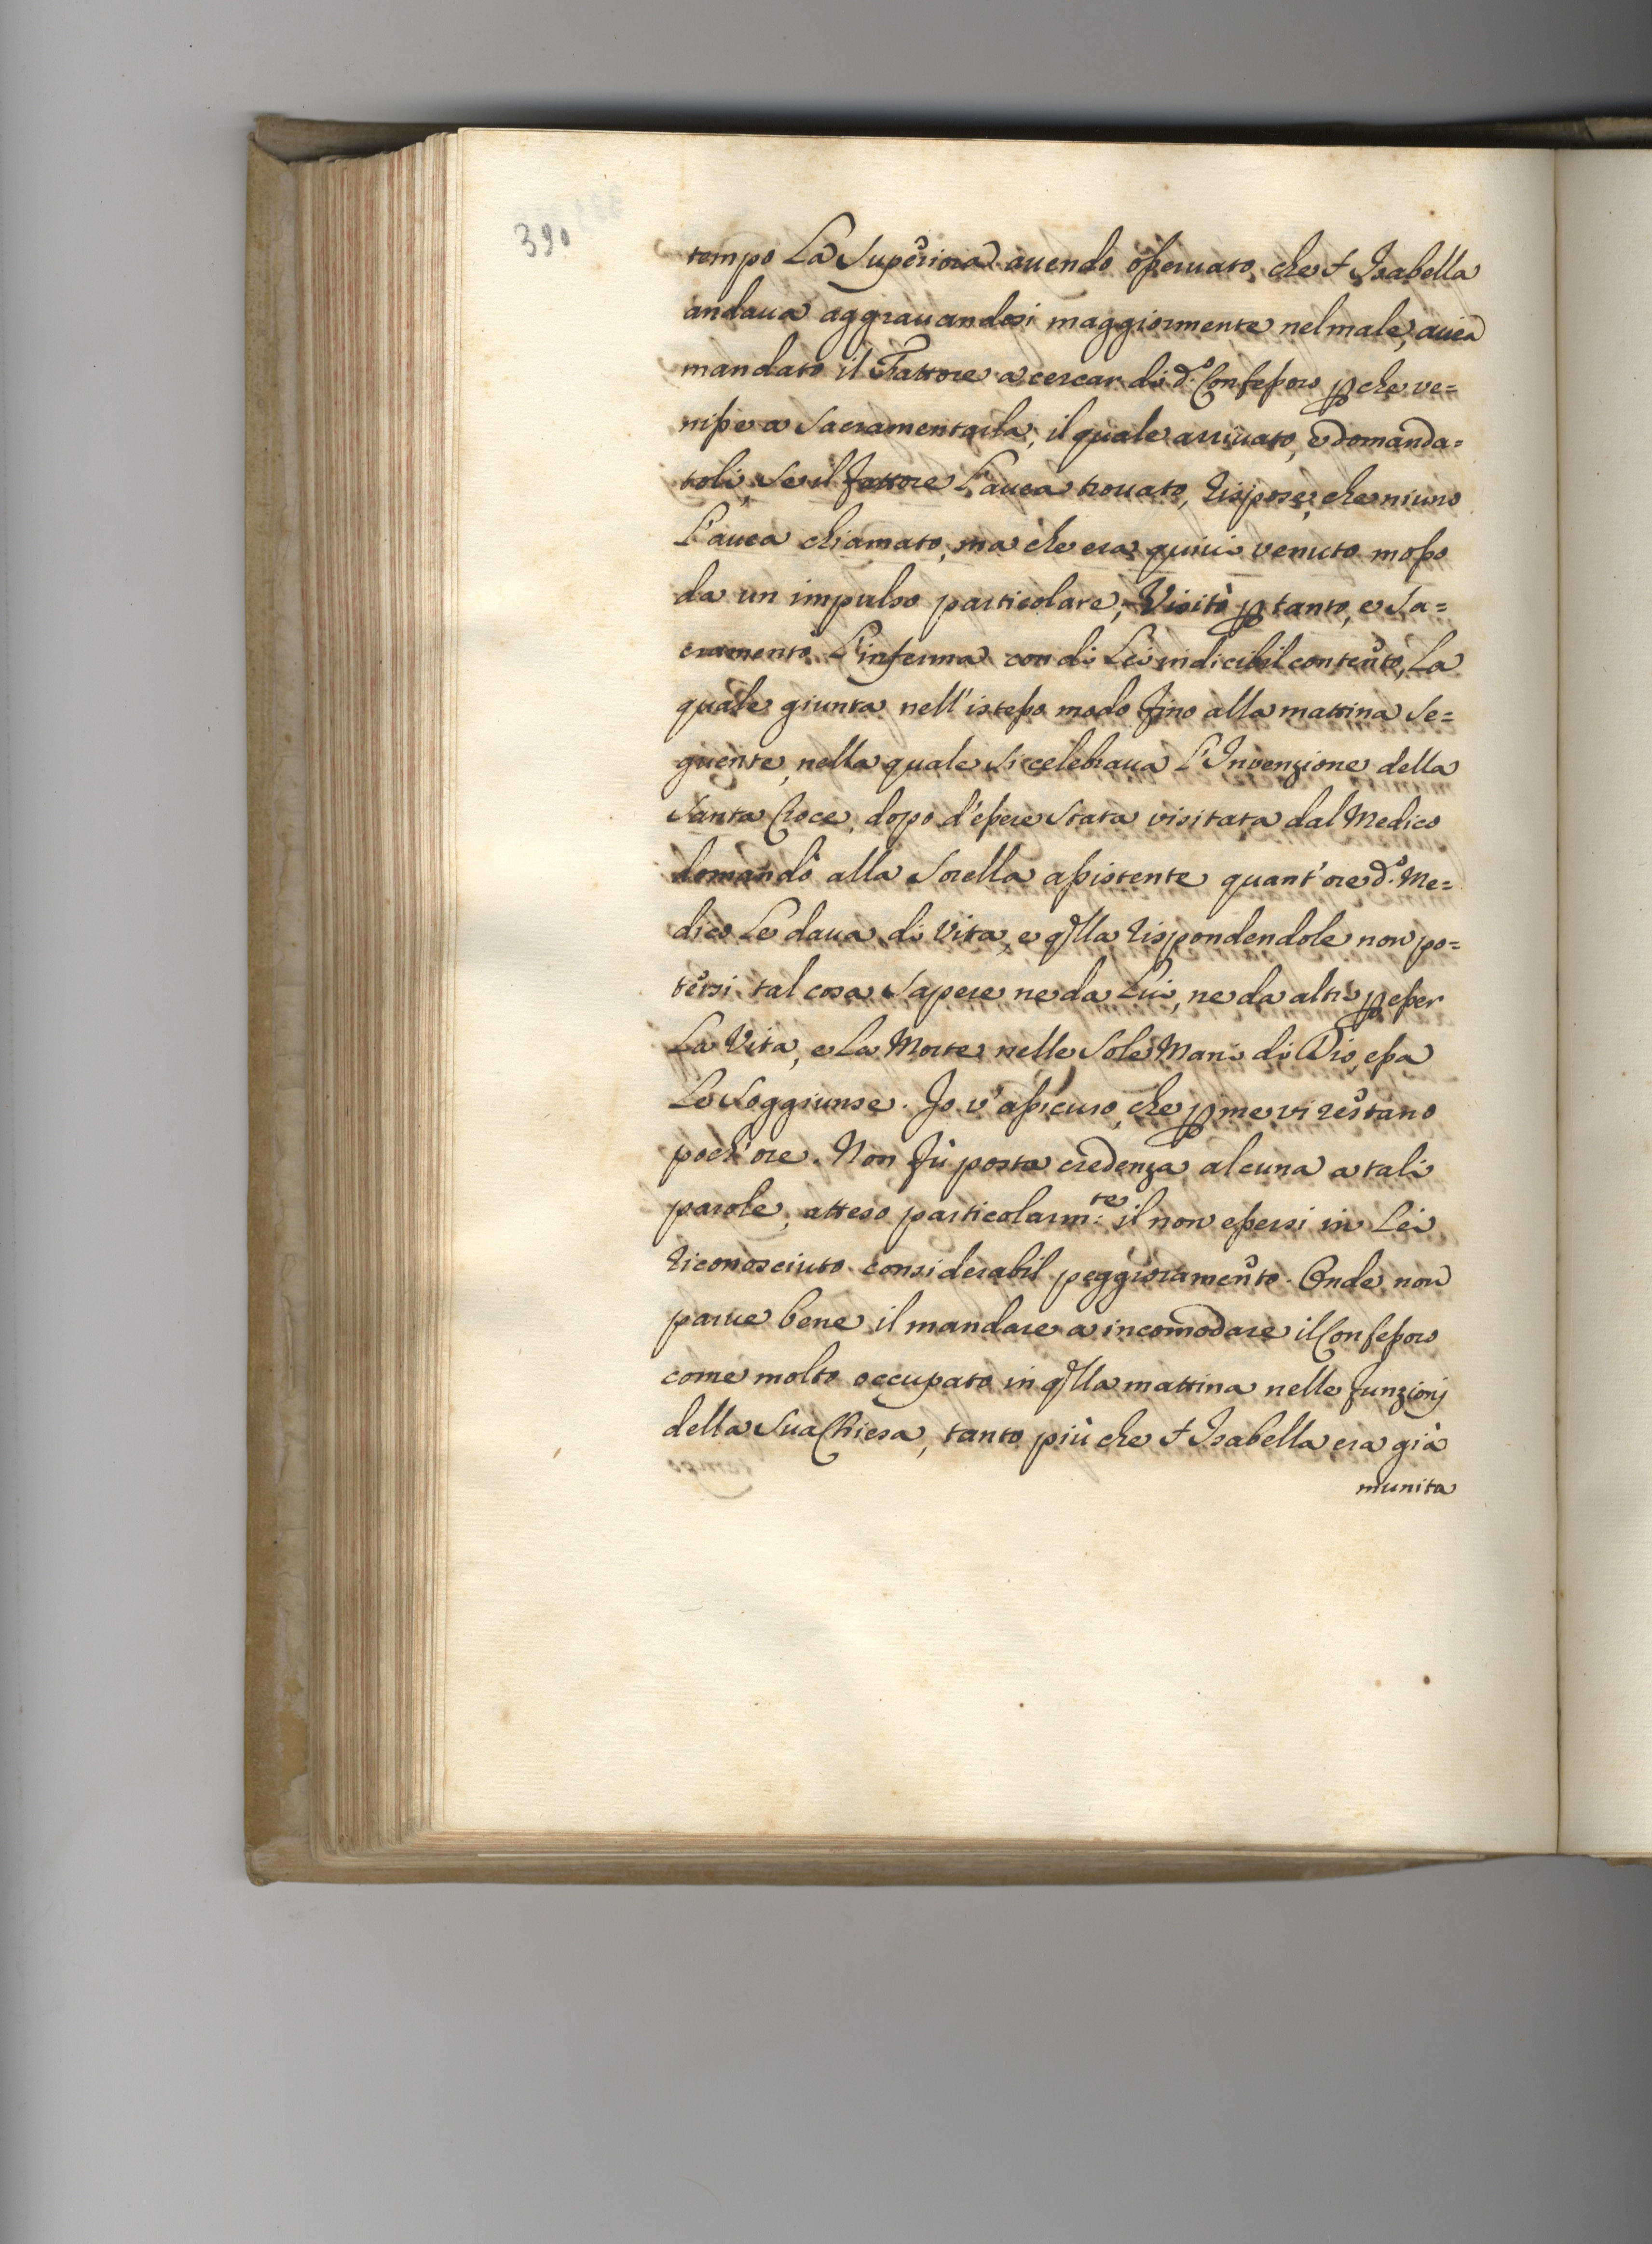 390
tempo La Superiora avendo osservato, che S. Isabella
andava aggravandosi maggiormente nel male, avea
mandato il Fattore a cercar di d.º Confessoro p che ve=
nisse a Sacramentarla; il quale arrivato, e domanda=
toli, Se il Fattore L'avea trovato, rispose, che niuno
L'avea chiamato, ma che era quivi venuto mosso
da un impulso particolare; Visitò p tanto, e Sa=
cramentò L'inferma con di Lei indicibil contento, La
quale giunta nell'istesso modo fino alla mattina Se=
guente, nella quale Si celebrava L'Invenzione della
Santa Croce, dopo d'essere Stata visitata dal Medico
domandò alla Sorella assistente quant'ore d.º Me=
dico Le dava di Vita, e qlla rispondendole non po=
tersi tal cosa Sapere ne da Lui, ne da altri p esser
La Vita, e La Morte nelle Sole Mani di Dio, essa
Le Soggiunse. Io v'assicuro, che p me vi restano
poch'ore. Non fù posta credenza alcuna a tali
parole, atteso particolarm:te il non essersi in Lei
riconosciuto considerabil peggioramento. Onde non
parve bene il mandare a incomodare il Confessoro
come molto occupato in qlla mattina nelle funzionj
della Sua Chiesa, tanto più che S. Isabella era già
munita